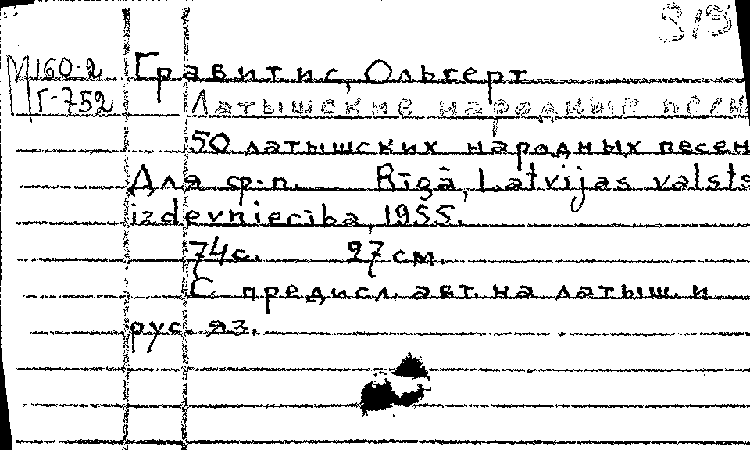 313
М160-2 Гравитис, Ольгерт
Г-752 Латышские народные песни
50 латышских народных песен
Для ф-п. Rīgā, Latvijas valsts
izdevniecība, 1955.
74с. 27 см.
С предисл. авт. на латыш. и
рус. яз.